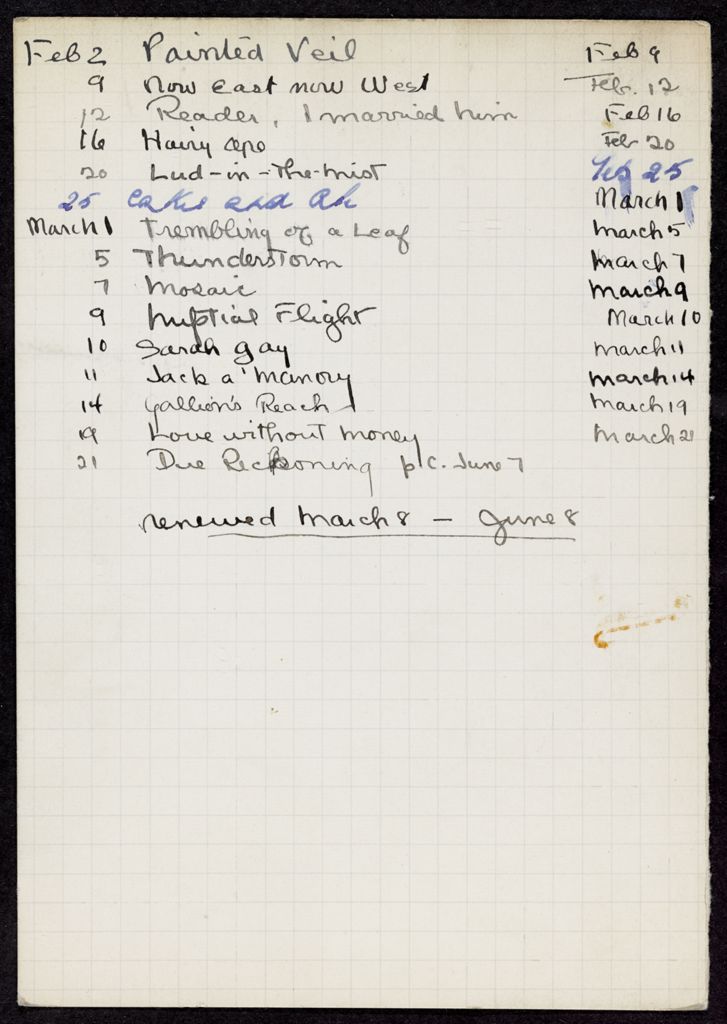 Feb 2 Painted Veil Feb 9
9 Now East now West Feb. 12
12 Reader, I married him Feb 16
16 Hairy ape Feb 20
20 Lud-in-The-mist Feb 25
25 Cakes and Ale March 1
March 1 Trembling of a Leaf March 5
5 Thunderstorm March 7
7 Mosaic March 9
9 Nuptial Flight March 10
10 Sarah Gay March 11
11 Jack a'Manory March 14
14 Gallion's Reach March 19
19 Love without money March 21
21 Due Reckoning p.c. June 7
renewed March 8 — June 8